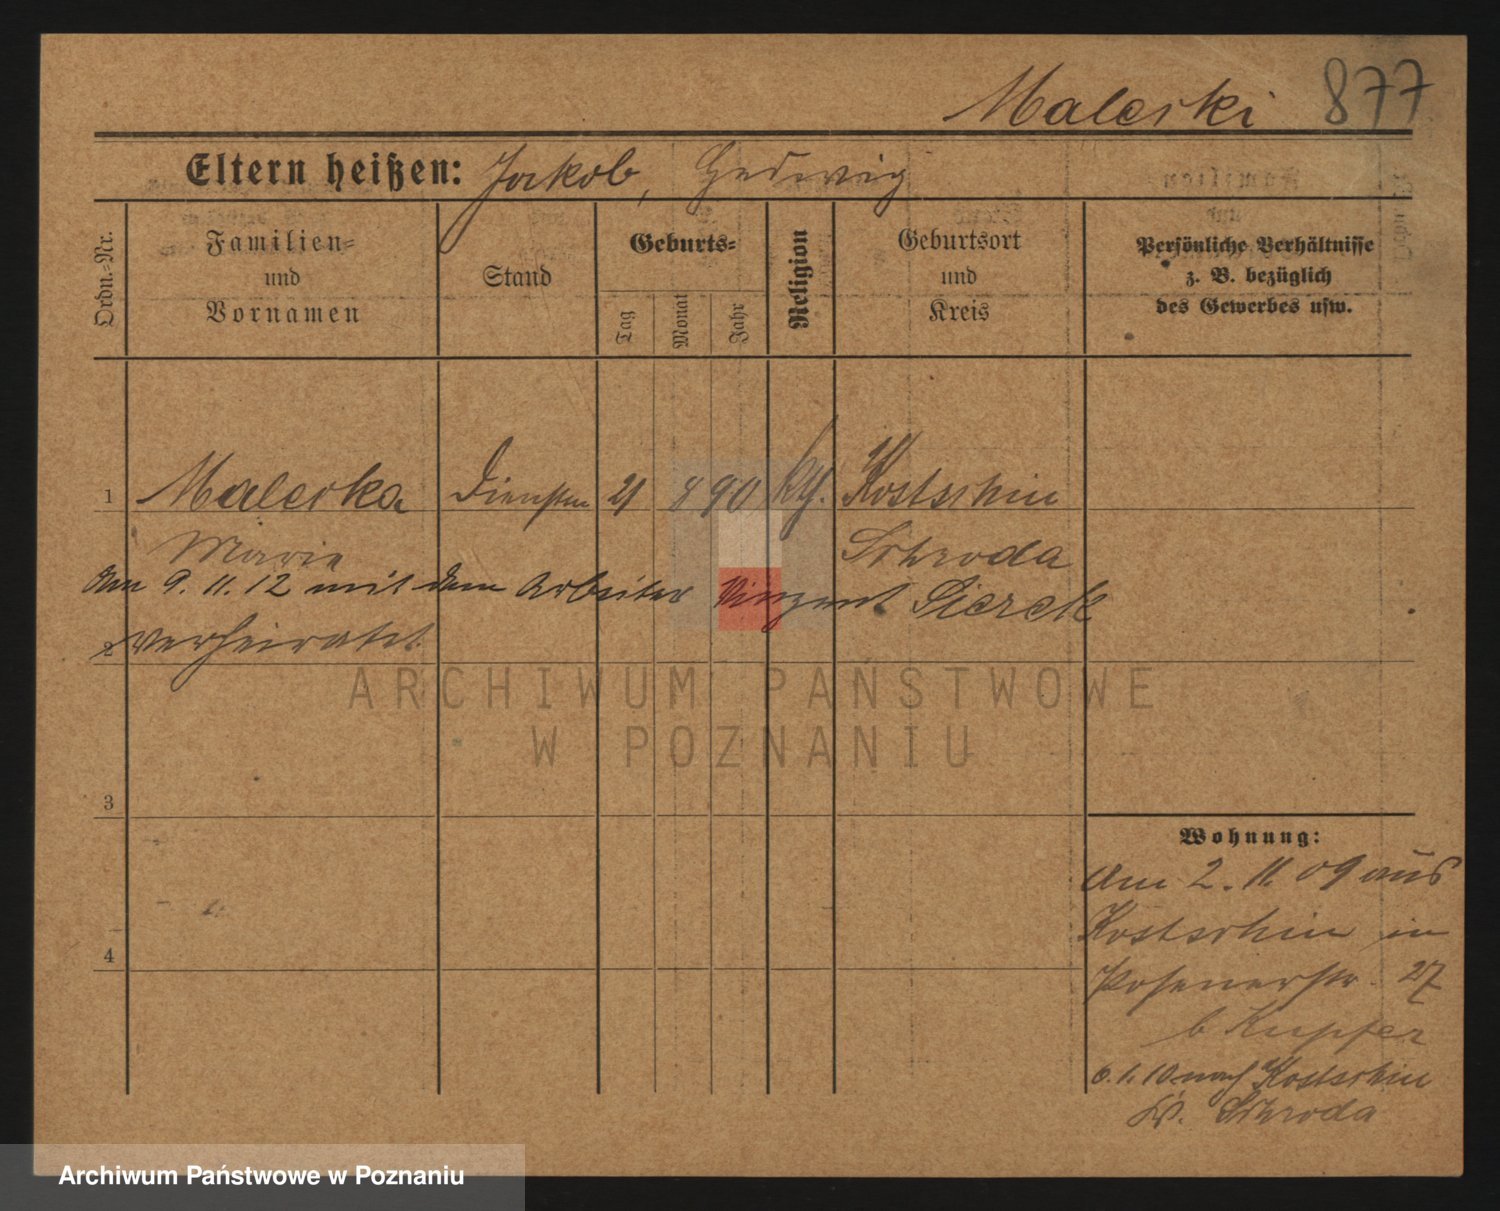 Maleski 877
Eltern heißen: Jakob, Hedwig
Ordn.-Nr.
Familien-
und
Vornamen
Stand
Geburts-
Tag
Monat
Jahr
Religion
Geburtsort
und
Kreis
Persönliche Verhältnisse
z. B. bezüglich
des Gewerbes usw.
1 Maleska 21 90 kth. Kostschin
Marie Schroda
Am 9. 11. 12 mit dem Arbeiter Vinzent
2 verheiratet.
ARCHIWUM PAŃSTWOWE
W POZNANIU
3
Wohnung:
Am 2. 11. 09 aus
Kostschin in
4 Posenerstr. 27
b Kupfer
6. 1. 10 nach Kostschin
Kr. Schroda
Archiwum Państwowe w Poznaniu